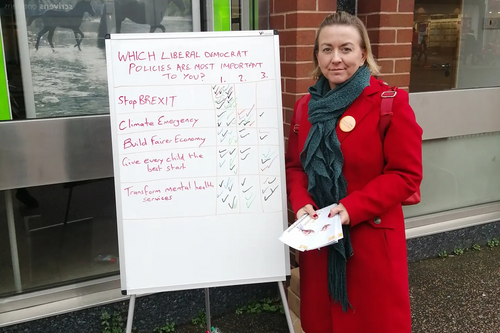 scrivens
WHICH LIBERAL DEMOCRAT
POLICIES ARE MOST IMPORTANT
TO YOU? 1. 2. 3.
Stop BREXIT
Climate Emergency
Build Fairer Economy
Give every child the
best start
Transform mental health
services